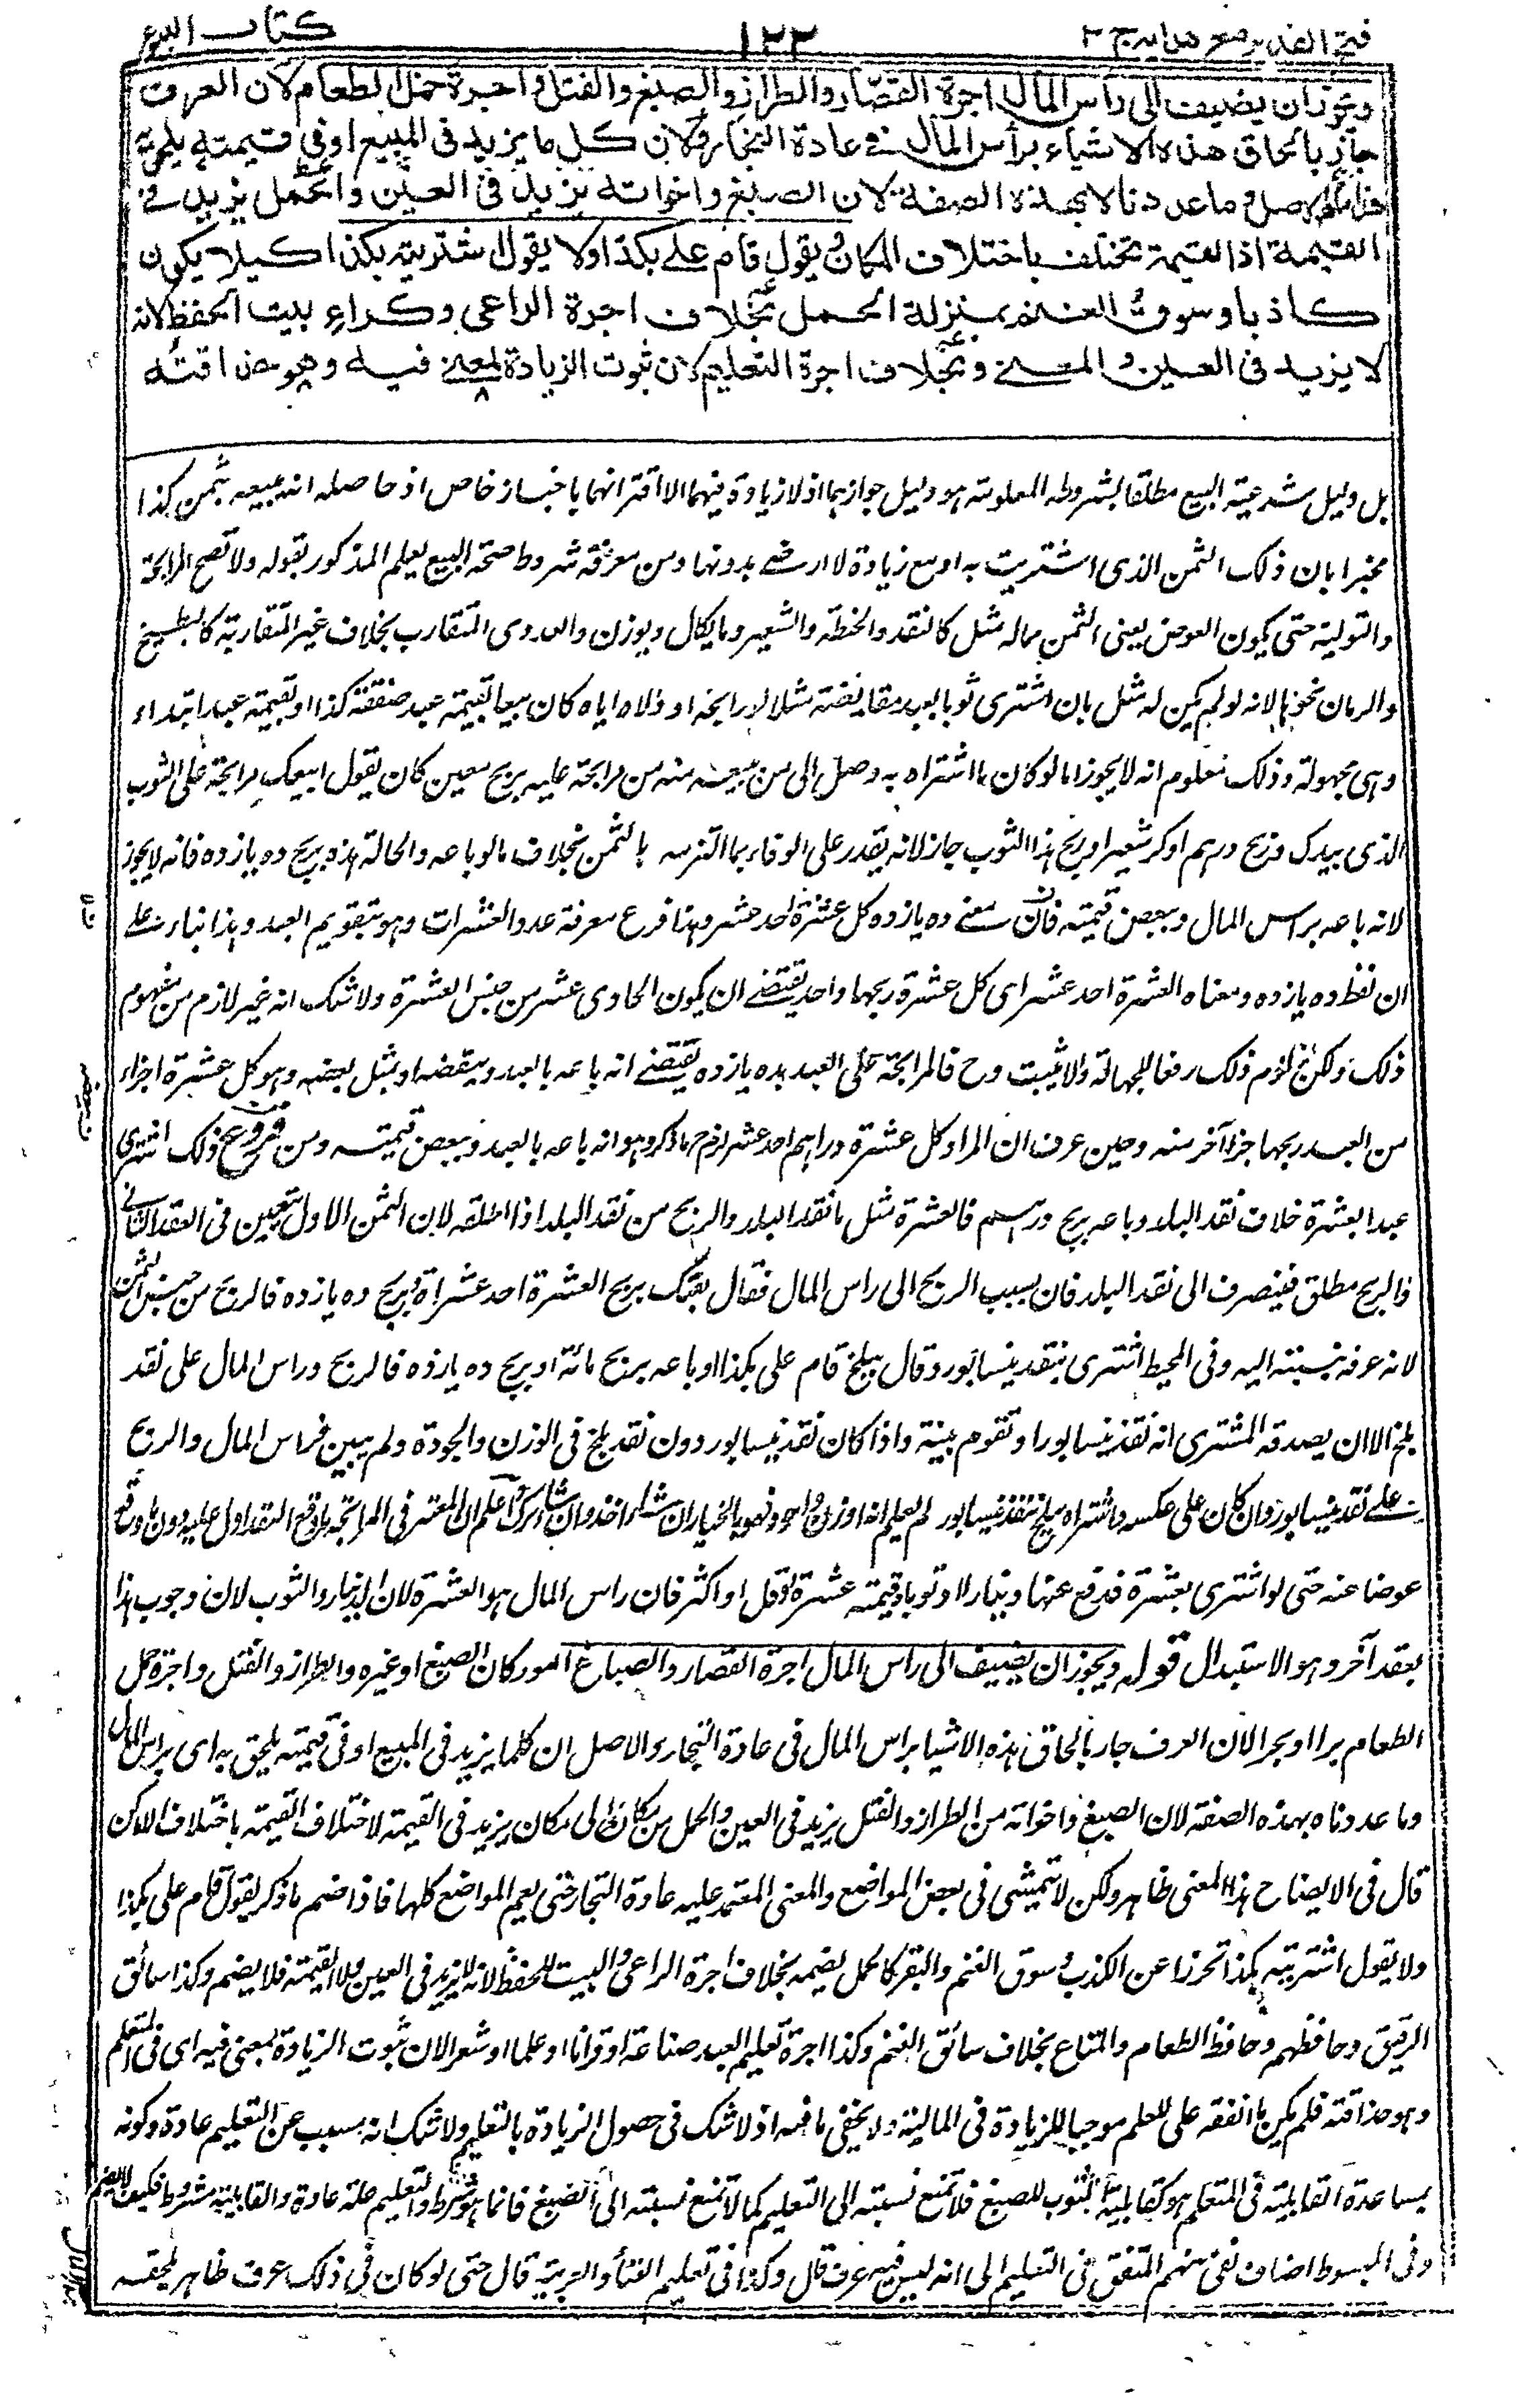 فتح القدير مع هدايه ج ٣
١٢٣
كتاب البيوع
ويجوز ان يضيف الى رأس المال اجرة القصّار والطراز والصبغ والفتل واجرة حمل الطعام لان العرف
جار بالحاق هذه الاشياء برأس المال فى عادة التجار ولان كل ما يزيد فى المبيع او فى قيمته يلحق به
هذا هو الاصل وما عددنا لا بهذه الصفة لان الصبغ واخواته يزيد فى العين والحمل يزيد فى
القيمة اذ القيمة تختلف باختلاف المكان ويقول قام على بكذا ولا يقول اشتريته بكذا كيلا يكون
كاذبا وسوق الغنم بمنزلة الحمل بخلاف اجرة الراعى وكراء بيت الحفظ لانه
لا يزيد فى العين والمعنى وبخلاف اجرة التعليم لان ثبوت الزيادة لمعنى فيه وهو حذاقته
بل دليل شرعية البيع مطلقا بشروطه المعلومة هو دليل جوازهما اذ لا زيادة فيهما الا اقترانهما باخبار خاص اذ حاصله انه يبيعه بثمن كذا
مخبرا بان ذلك الثمن الذى اشتريت به او مع زيادة لا ارضى بدونها ومن معرفة شروط صحة البيع يعلم المذكور بقوله ولا تصح المرابحة
والتولية حتى يكون العوض يعنى الثمن مما له مثل كالنقد والحنطة والشعير وما يكال ويوزن والعددى المتقارب بخلاف غير المتقاربة كالبطيخ
والرمان نحوها لانه لو لم يكن له مثل بان اشترى ثوبا بعبد مقايضة مثلا لو رابحه او ولاه اياه كان بيعا بقيمة عبد صفته كذا او بقيمة عبد ابتداء
وهى مجهولة وذلك معلوم انه لا يجوز اما لو كان ما اشتراه به وصل الى من يبيعه منه من مرابحة عليه بربح معين كان يقول ابيعك مرابحة على الثوب
الذى بيدك وربح درهم او كر شعير او ربح هذا الثوب جاز لانه يقدر على الوفاء بما التزمه بالثمن بخلاف ما لو باعه والحالة هذه بربح ده يازده فانه لا يجوز
لانه باعه براس المال وببعض قيمته فان معنى ده يازده كل عشرة احد عشر وهذا فرع معرفة عدد العشرات وهو بتقويم العبد وهذا بناء على
ان لفظ ده يازده ومعناه العشرة احد عشر اى كل عشرة ربحها واحد يقتضى ان يكون الحادى عشر من جنس العشرة ولا شك انه غير لازم من مفهوم
ذلك ولكن لزوم ذلك رفعا للجهالة والا ثبت وح فالمرابحة على العبد بده يازده يقتضى انه باعه بالعبد وببعضه او بمثل بعضه وهو كل عشرة اجزاء
من العبد ربحها جزا آخر منه وحين عرف ان المراد كل عشرة دراهم احد عشر لزم ما ذكر وهو انه باعه بالعبد وببعض قيمته ومن فروع ذلك اشترى
عبدا بعشرة خلاف نقد البلد وباعه بربح درهم فالعشرة مثل ما نقد البلد والربح من نقد البلد اذا اطلقه لان الثمن الاول يتعين فى العقد الثانى
والربح مطلق فينصرف الى نقد البلد فان نسب الربح الى راس المال فقال بعتك بربح العشرة احد عشر او بربح ده يازده فالربح من جنس الثمن
لانه عرفه بنسبته اليه وفى المحيط اشترى بنقد نيسابور وقال ببلخ قام على بكذا او باعه بربح مائة او بربح ده يازده فالربح وراس المال على نقد
بلخ الا ان يصدقه المشترى انه نقد نيسابور او تقوم بينة واذا كان نقد نيسابور دون نقد بلخ فى الوزن والجودة ولم يبين فراس المال والربح
على نقد نيسابور وان كان على عكسه واشتراه ببلخ بنقد نيسابور لم يعلم انه اوزن واجود فهو بالخيار ان شاء اخذ وان شاء ترك واعلم ان المعتبر فى المرابحة ما وقع العقد اول عليه دون ما وقع
عوضا عنه حتى لو اشترى بعشرة فدفع عنها دينارا او ثوبا قيمته عشرة او اقل او اكثر فان راس المال هو العشرة لان الدينار والثوب لان وجوب هذا
بعقد آخر وهو الاستبدال قوله ويجوز ان يضيف الى راس المال اجرة القصار والصباغ اسود كان الصبغ او غيره والطراز والفتل واجرة حمل
الطعام برا او بحرا لان العرف جار بالحاق هذه الاشيا براس المال فى عادة التجار والاصل ان كلما يزيد فى المبيع او فى قيمته يلحق به اى براس المال
وما عددناه بهذه الصفة لان الصبغ واخواته من الطراز والفتل يزيد فى العين والحمل من مكان الى مكان يزيد فى القيمة لاختلاف القيمة باختلاف الاماكن
قال فى الايضاح هذا المعنى ظاهر ولكن لا يتمشى فى بعض المواضع والمعنى المعتمد عليه عادة التجار حتى يعم المواضع كلها فاذا ضم ما ذكر يقول قام على بكذا
ولا يقول اشتريته بكذا تحرزا عن الكذب وسوق الغنم والبقر كالحمل يضمه بخلاف اجرة الراعى والبيت للحفظ لانه لا يزيد فى العين ولا القيمة فلا يضم وكذا سائق
الرقيق وحافظهم وحافظ الطعام والمتاع بخلاف سائق الغنم وكذا اجرة تعليم العبد صناعة او قرانا او علما او شعرا لان ثبوت الزيادة لمعنى فيه اى فى المتعلم
وهو حذاقته فلم يكن ما انفقه على المعلم موجبا للزيادة فى المالية ولا يخفى ما فيه اذ لا شك فى حصول الزيادة بالتعليم ولا شك انه مسبب عن التعليم عادة وكونه
بمساعدة القابلية فى المتعلم هو كقابلية الثوب للصبغ فلا تمنع نسبته الى التعليم كما لا تمنع نسبته الى الصبغ فانما هو شرط والتعليم علة عادة والقابلية شرط فكيف لا يضم
وفى المبسوط اضاف نفى ضم المنفق فى التعليم الى انه ليس فيه عرف قال وكذا فى تعليم الغناء والعربية قال حتى لو كان فى ذلك عرف ظاهر يلحقه